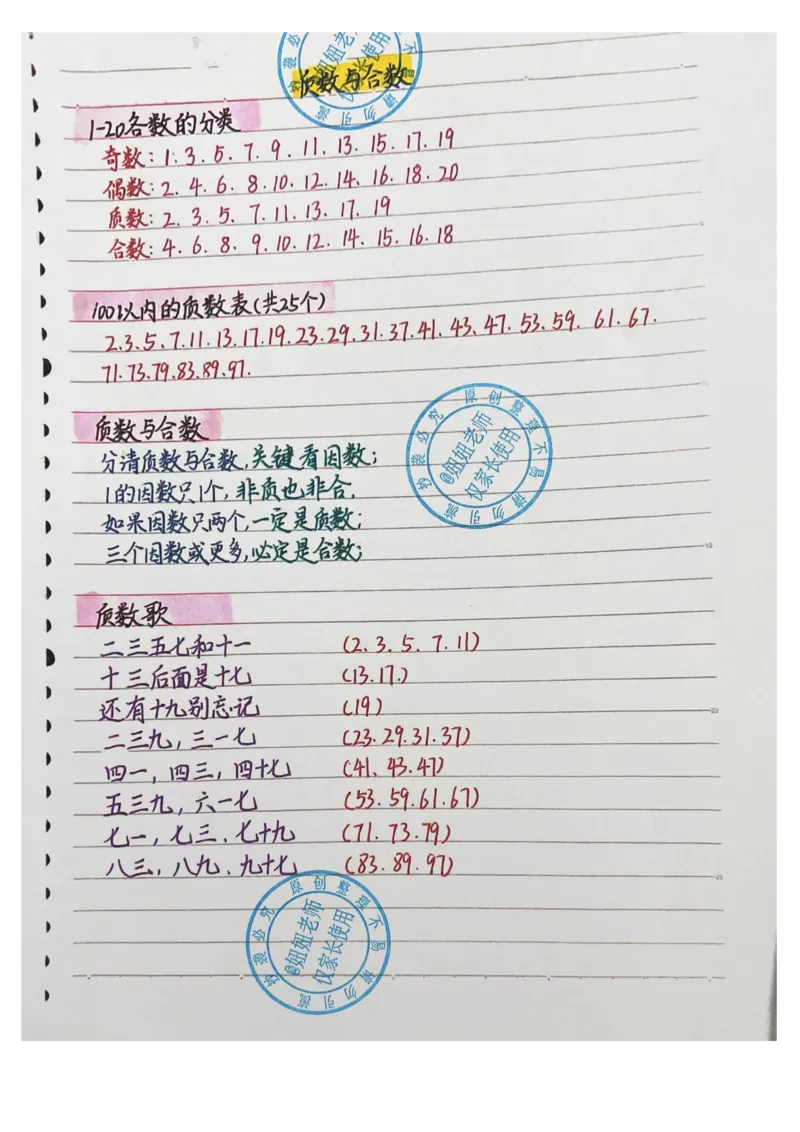 质数与合数
1-20各数的分类
奇数:1.3.5.7.9.11.13.15.17.19
偶数:2.4.6.8.10.12.14.16.18.20
质数:2.3.5.7.11.13.17.19
合数:4.6.8.9.10.12.14.15.16.18
100以内的质数表(共25个)
2.3.5.7.11.13.17.19.23.29.31.37.41.43.47.53.59.61.67.
71.73.79.83.89.97.
质数与合数
分清质数与合数,关键看因数;
1的因数只1个,非质也非合.
如果因数只两个,一定是质数;
三个因数或更多,必定是合数;
原创整理不易请勿引流抄袭必究
@妞妞老师
仅家长使用
质数歌
二三五七和十一 (2.3.5.7.11)
十三后面是十七 (13.17.)
还有十九别忘记 (19)
二三九,三一七 (23.29.31.37)
四一,四三,四十七 (41.43.47)
五三九,六一七 (53.59.61.67)
七一,七三.七十九 (71.73.79)
八三,八九.九十七 (83.89.97)
原创整理不易请勿引流抄袭必究
@妞妞老师
仅家长使用